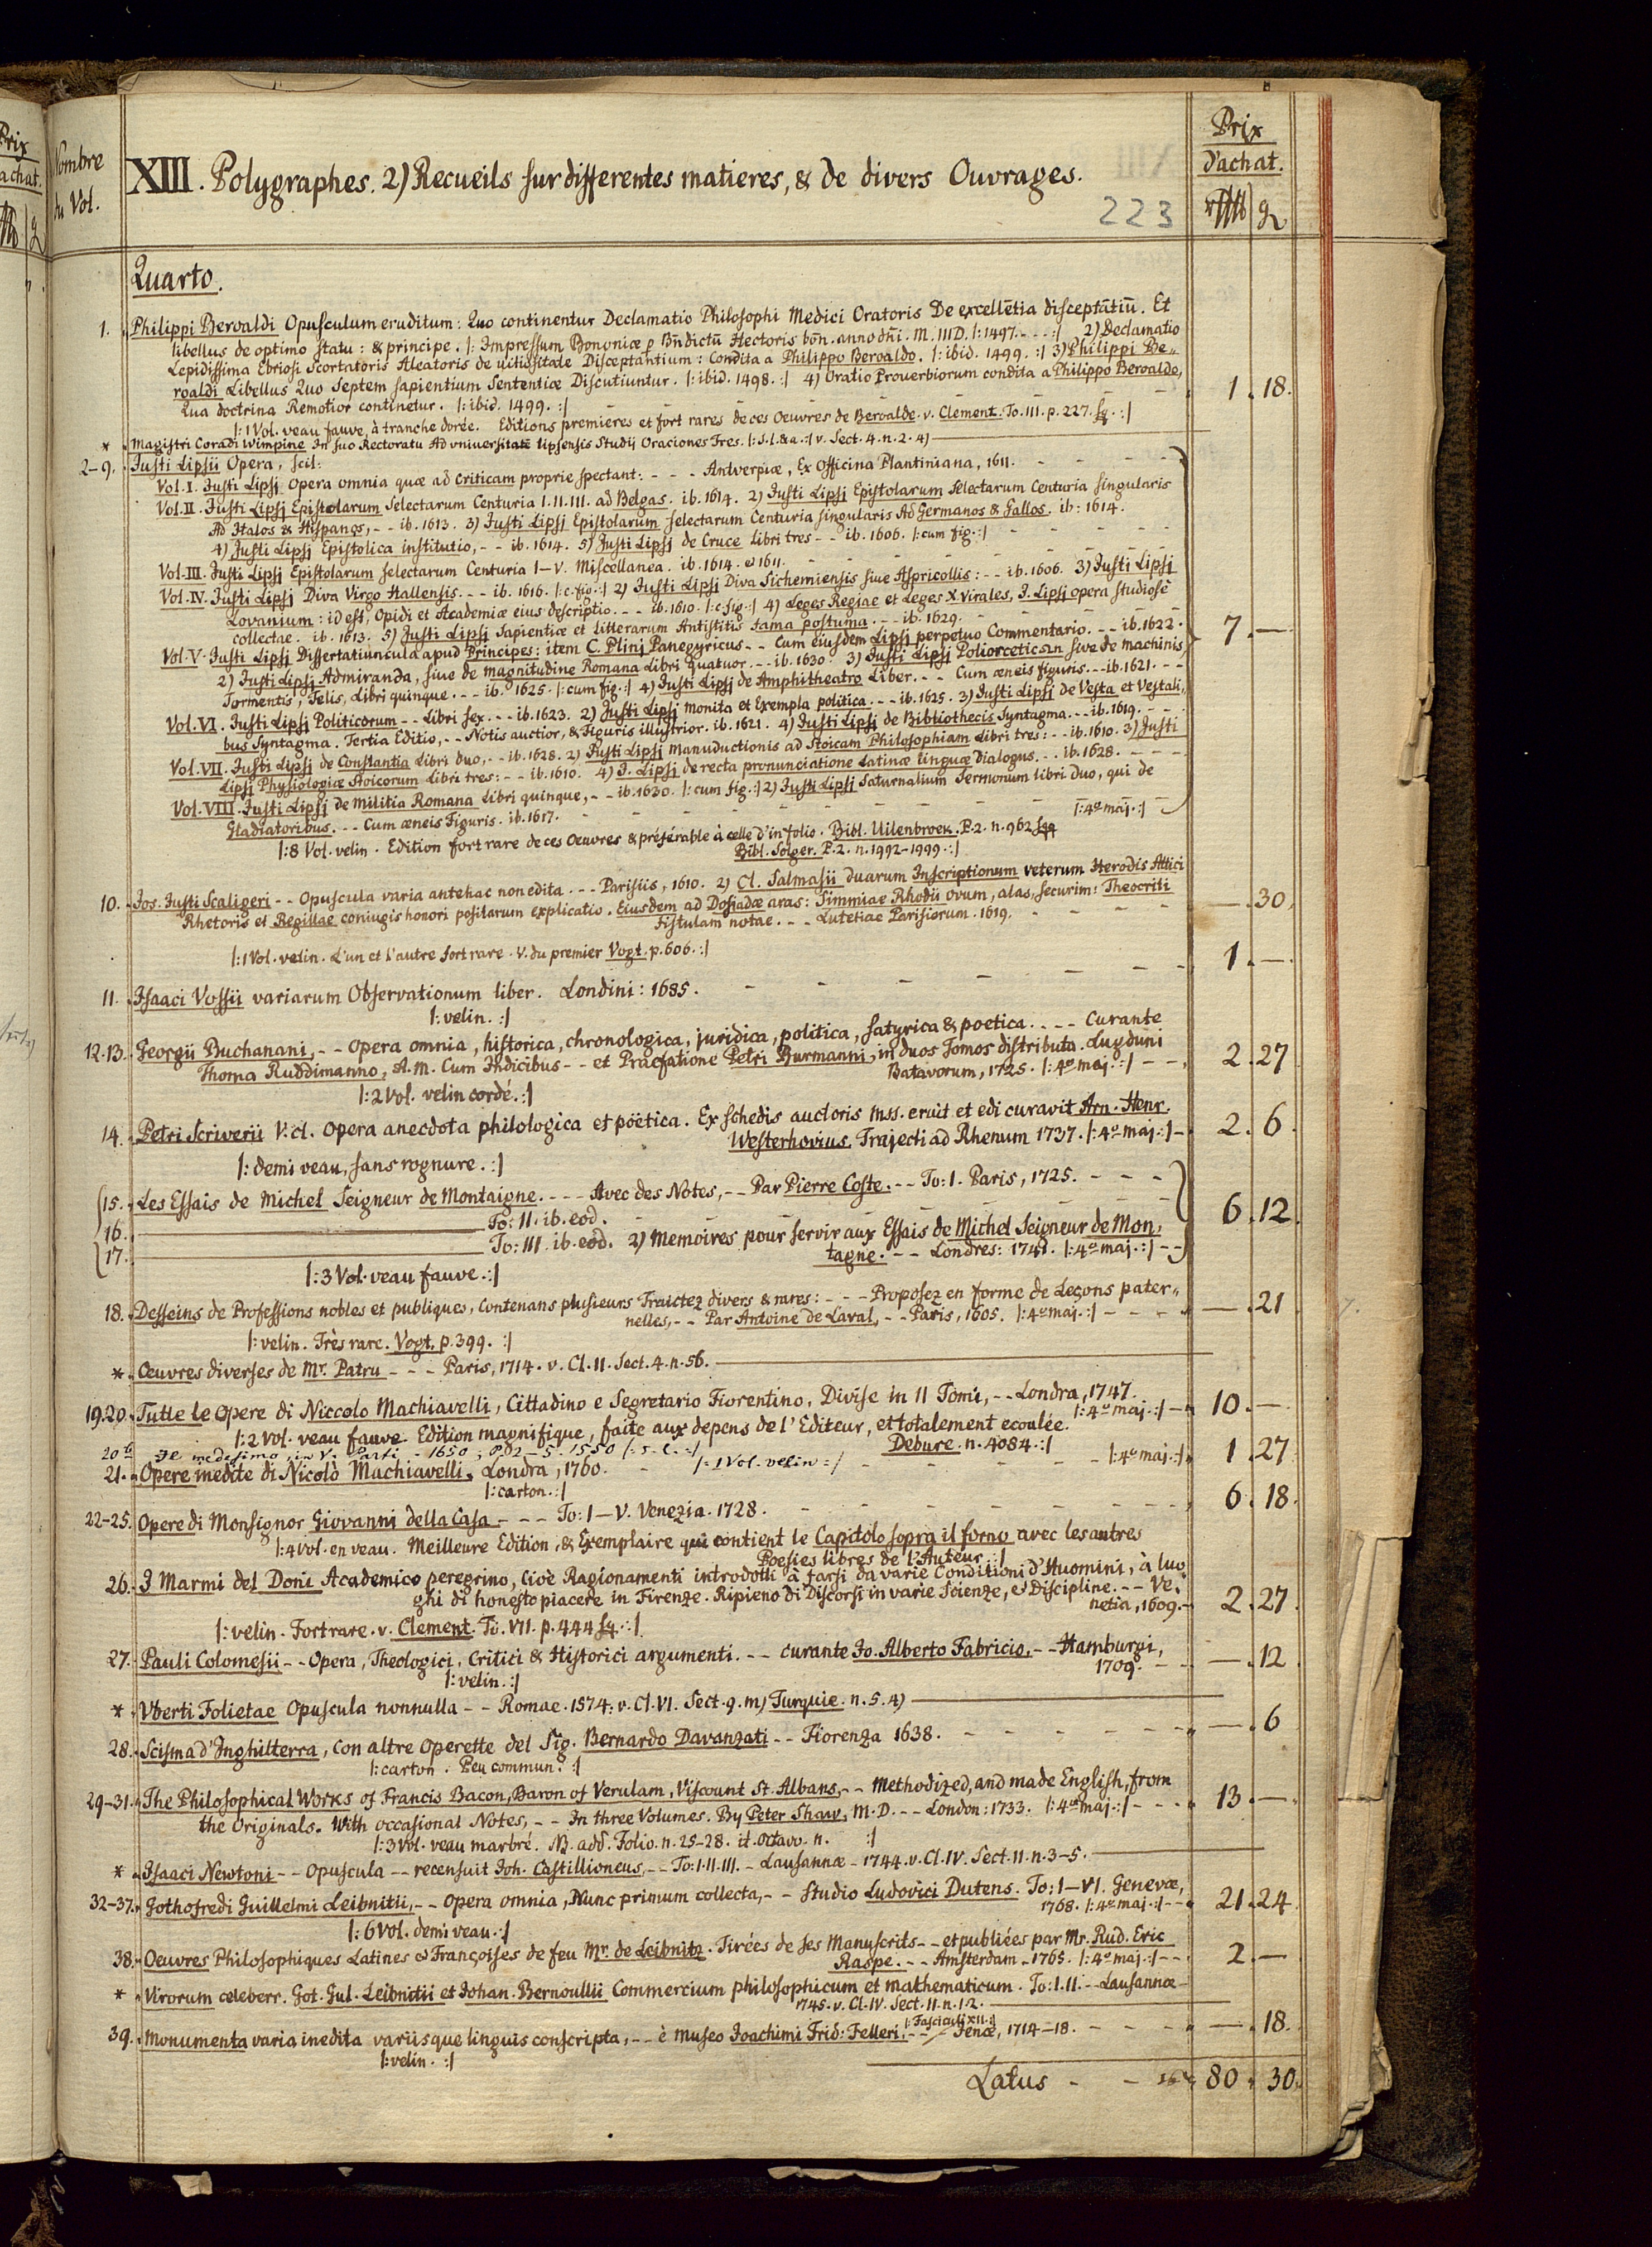 Prix
achat.
Nombre
du Vol.
XIII. Polygraphes. 2) Recueils sur differentes matieres, & de divers Ouvrages.
223
Prix
d'achat.
Quarto.
1. Philippi Beroaldi Opusculum eruditum: Quo continentur Declamatio Philosophi Medici Oratoris De excellētia disceptātiū. Et
libellus de optimo statu: & principe. |: Impressum Bononiæ p Bn̄dictū Hectoris bōn. anno dn̄i. M.IIID. |:1497. - - - :| 2) Declamatio
Lepidissima Ebriosi Scortatoris Aleatoris de uitiositate Disceptantium: Condita a Philippo Beroaldo. |: ibid. 1499. :| 3) Philippi Be-
roaldi Libellus Quo Septem sapientium Sententiæ Discutiuntur. |: ibid. 1498. :| 4) Oratio Prouerbiorum condita a Philippo Beroaldo,
Qua doctrina Remotior continetur. |: ibid. 1499. :| 1. 18.
|: 1 Vol. veau fauve, à tranche dorée. Editions premieres et fort rares de ces Oeuvres de Beroalde. v. Clement. To. III. p. 227. sq. :|
* Magistri Coradi Wimpine In suo Rectoratu Ad vniuersitatē lipsensis Studij Oraciones Tres. |: s. l. & a. :| v. Sect. 4. n. 2. 4)
2-9. Justi Lipsii Opera, scil:
Vol. I. Justi Lipsj Opera omnia quæ ad Criticam proprie spectant: - - - Antverpiæ, Ex Officina Plantiniana, 1611.
Vol. II. Justi Lipsj Epistolarum Selectarum Centuria I. II. III. ad Belgas. ib. 1614. 2) Justi Lipsj Epistolarum Selectarum Centuria singularis
Ad Italos & Hispanos, - - ib. 1613. 3) Justi Lipsj Epistolarum selectarum Centuria singularis Ad Germanos & Gallos. ib: 1614.
4) Justi Lipsj Epistolica institutio, - - ib. 1614. 5) Justi Lipsj de Cruce libri tres - - ib. 1606. |: cum fig. :|
Vol. III. Justi Lipsj Epistolarum selectarum Centuria I-V. Miscellanea. ib. 1614. & 1611.
Vol. IV. Justi Lipsj Diva Virgo Hallensis. - - - ib. 1616. |: c. fig. :| 2) Justi Lipsj Diva Sichemiensis siue Aspricollis: - - ib. 1606. 3) Justi Lipsj
Lovanium: id est, Opidi et Academiæ eius descriptio. - - - ib. 1610. |: c. fig. :| 4) Leges Regiae et Leges X. virales, J. Lipsj opera studiosè
collectae. ib. 1613. 5) Justi Lipsj Sapientiæ et litterarum Antistitis fama postuma. - - - ib. 1629.
Vol. V. Justi Lipsj Dissertatiuncula apud Principes: item C. Plinj Panegyricus - - Cum eiusdem Lipsj perpetuo Commentario. - - - ib. 1622. 7. —
2) Justi Lipsj Admiranda, siue de magnitudine Romana Libri quatuor. - - - ib. 1630. 3) Justi Lipsj Poliorceticωn sive de machinis
Tormentis, Telis, Libri quinque. - - - ib. 1625. |: cum fig. :| 4) Justi Lipsj de Amphitheatro Liber. - - - Cum æneis figuris. - - - ib. 1621. - - -
Vol. VI. Justi Lipsj Politicorum - - Libri sex. - - - ib. 1623. 2) Justi Lipsj Monita et Exempla politica. - - - ib. 1625. 3) Justi Lipsj de Vesta et Vestali-
bus Syntagma. Tertia Editio, - - Notis auctior, & Figuris illustrior. ib. 1621. 4) Justi Lipsj de Bibliothecis Syntagma. - - - ib. 1619.
Vol. VII. Justi Lipsj de Constantia Libri duo, - - ib. 1628. 2) Justi Lipsj Manuductionis ad Stoicam Philosophiam Libri tres: - - ib. 1610. 3) Justi
Lipsj Physiologiæ Stoicorum Libri tres: - - ib. 1610. 4) J. Lipsj de recta pronunciatione Latinæ linguæ Dialogus. - - ib. 1628.
Vol. VIII. Justi Lipsj de Militia Romana Libri quinque, - - ib. 1630. |: cum fig. :| 2) Justi Lipsj Saturnalium Sermonum libri duo, qui de
Gladiatoribus. - - - Cum æneis Figuris. ib. 1617. |: 4o maj. :|
|: 8 Vol. velin. Edition fort rare de ces Oeuvres & préférable à celle d'in folio. Bibl. Uilenbroek. P. 2. n. 962 sqq
Bibl. Solger. P. 2. n. 1992-1999. :|
10. Jos. Justi Scaligeri - - Opuscula varia antehac non edita. - - - Parisiis, 1610. 2) Cl. Salmasii Duarum Inscriptionum veterum Herodis Attici
Rhetoris et Regillae coniugis honori positarum explicatio. Eiusdem ad Dosiadæ aras: Simmiae Rhodii ovum, alas, securim: Theocriti — . 30.
fistulam notae. - - - Lutetiae Parisiorum. 1619.
|: 1 Vol. velin. L'un et l'autre fort rare. V. du premier Vogt. p. 606. :|
11. Isaaci Vossii variarum Observationum liber. Londini: 1685. 1. —
|: velin. :|
12.13. Georgii Buchanani, - - Opera omnia, historica, chronologica, juridica, politica, satyrica & poetica. - - - - Curante
Thoma Ruddimanno, A. M. Cum Indicibus - - et Praefatione Petri Burmanni, in duos Tomos distributa. Lugduni 2. 27
Batavorum, 1725. |: 4o maj. :|
|: 2 Vol. velin cordé. :|
14. Petri Scriverii V. cl. Opera anecdota philologica et pöetica. Ex schedis auctoris mss. eruit et edi curavit Arn. Henr.
Westerhovius. Trajecti ad Rhenum 1737. |: 4o maj. :| 2. 6.
|: demi veau, sans rognure. :|
15. Les Essais de Michel Seigneur de Montaigne. - - - - Avec des Notes, - - Par Pierre Coste. - - - To: I. Paris, 1725.
16. To: II. ib. eod. 6. 12.
17. To: III. ib. eod. 2) Memoires pour servir aux Essais de Michel Seigneur de Mon-
tagne. - - - Londres: 1741. |: 4o maj. :|
|: 3 Vol. veau fauve. :|
18. Desseins de Professions nobles et publiques, Contenans plusieurs Traictez divers & rares: - - - Proposez en forme de Leçons pater-
nelles, - - Par Antoine de Laval, - - Paris, 1605. |: 4o maj. :| — . 21
|: velin. Très rare. Vogt. p. 399. :|
* Œuvres diverses de Mr. Patru - - - Paris, 1714. v. Cl. II. Sect. 4. n. 56.
19.20. Tutte le Opere di Niccolo Machiavelli, Cittadino e Segretario Fiorentino, Divise in II Tomi, - - Londra, 1747.
|: 4o maj. :| 10. —
|: 2 Vol. veau fauve. Edition magnifique, faite aux depens de l'Editeur, et totalement ecoulée.
Debure. n. 4084. :|
20b Il medesimo, in V. Parti - 1650, P. 2-5. 1550 |: s. l. :| |: 1 Vol. velin :|
21. Opere inedite di Nicolò Machiavelli. Londra, 1760. |: 4o maj. :| 1. 27
|: carton. :|
22-25. Opere di Monsignor Giovanni della Casa - - - To: I-V. Venezia. 1728. 6. 18.
|: 4 Vol. en veau. Meilleure Edition, & Exemplaire qui contient le Capitolo sopra il forno avec les autres
Poesies libres de l'Auteur. :|
26. I Marmi del Doni Academico peregrino, Cioè Ragionamenti introdotti à farsi da varie Conditioni d'Huomini, à luo-
ghi di honesto piacere in Firenze. Ripieno di Discorsi in varie Scienze, & Discipline. - - - Ve-
netia, 1609. 2. 27.
|: velin. Fort rare. v. Clement. To. VII. p. 444 sq. :|
27. Pauli Colomesii - - Opera, Theologici, Critici & Historici argumenti. - - - curante Jo. Alberto Fabricio, - - Hamburgi,
1709. — . 12
|: velin. :|
* Vberti Folietae Opuscula nonnulla - - Romae. 1574. v. Cl. VI. Sect. 9. m) Turquie. n. 5. 4)
28. Scisma d'Inghilterra, con altre Operette del Sig. Bernardo Davanzati - - Fiorenza 1638. — . 6
|: carton. Peu commun. :|
29-31. The Philosophical Works of Francis Bacon, Baron of Verulam, Viscount St. Albans, - - Methodized, and made English, from
the Originals. With occasional Notes, - - In three Volumes. By Peter Shaw, M. D. - - - London: 1733. |: 4o maj. :| 13. —
|: 3 Vol. veau marbré. NB. add. Folio. n. 25-28. it. Octavo. n. :|
* Isaaci Newtoni - - Opuscula - - recensuit Joh. Castillioneus, - - To: I. II. III. - Lausannæ - 1744. v. Cl. IV. Sect. 11. n. 3-5.
32-37. Gothofredi Guillelmi Leibnitii, - - Opera omnia, Nunc primum collecta, - - Studio Ludovici Dutens. To: I-VI. Genevæ,
1768. |: 4o maj. :| 21. 24
|: 6 Vol. demi veau. :|
38. Oeuvres Philosophiques Latines & Françoises de feu Mr. de Leibnitz. Tirées de ses Manuscrits - - et publiées par Mr. Rud. Eric
Raspe. - - Amsterdam - 1765. |: 4o maj. :| 2. —
* Virorum celeberr. Got. Gul. Leibnitii et Johan. Bernoullii Commercium philosophicum et mathematicum. To: I. II. - Lausannæ
1745. v. Cl. IV. Sect. 11. n. 1. 2.
|: Fasciculi XII. :|
39. Monumenta varia inedita variisque linguis conscripta, - - è Museo Joachimi Frid: Felleri. - - Jenæ, 1714-18. — . 18.
|: velin. :|
Latus 80. 30.